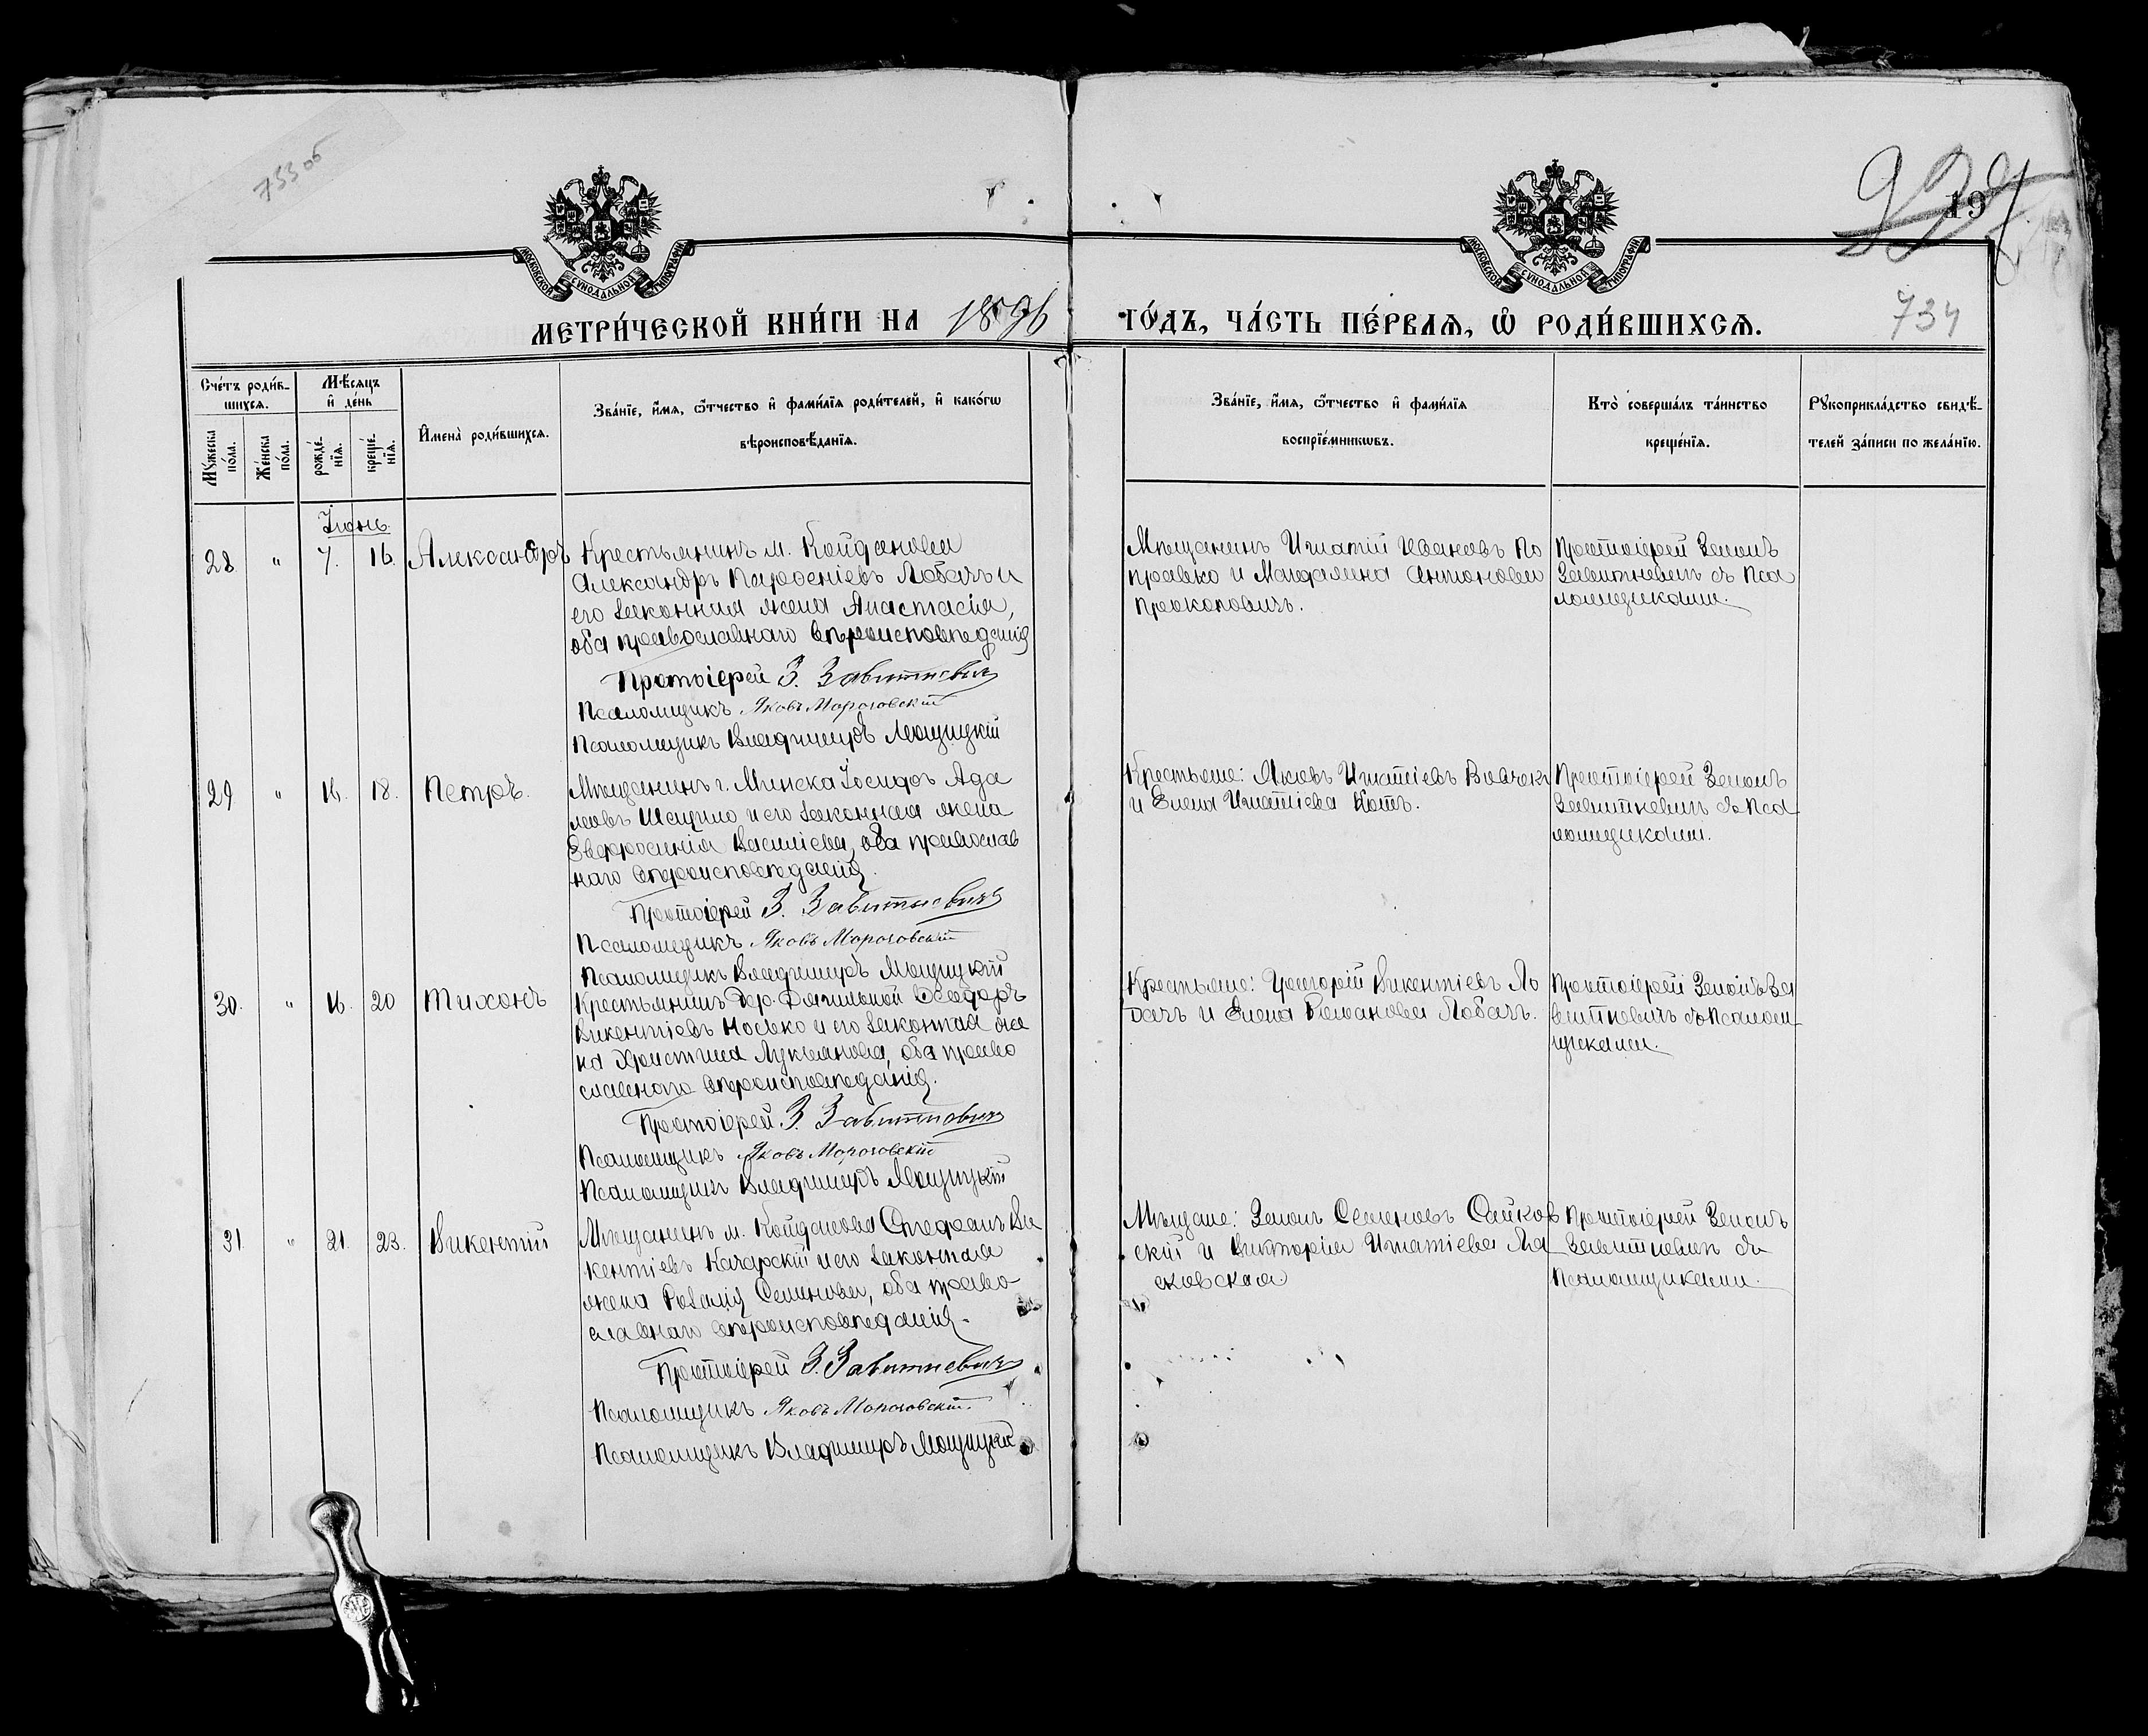 733об
МОСКОВСКОЙ СѴНОДАЛЬНОЙ ТИПОГРАФІИ
МОСКОВСКОЙ СѴНОДАЛЬНОЙ ТИПОГРАФІИ
19
734
МЕТРИ́ЧЕСКОЙ КНИ́ГИ НА 1896 ГО́ДЪ, ЧА́СТЬ ПЕ́РВАЯ, Ѡ РОДИ́ВШИХСЯ.
Сче́тъ роди́в-
шихся.
Мѣ́сяцъ
и де́нь
Му́жеска по́ла.
Же́нска по́ла.
рожде́-
нїя.
креще́-
нїя.
Имена̀ роди́вшихся.
Зва́нїе, и́мя, ѻ́тчество и фами́лїя роди́телей, и како́гѡ
вѣроисповѣ́данїя.
Зва́нїе, и́мя, ѻ́тчество и фами́лїя
воспрїе́мникѡвъ.
Кто̀ соверша́лъ та́инство
креще́нїя.
Рꙋкоприкла́дство свидѣ́-
телей за́писи по жела́нїю.
Іюнь.
28 " 7. 16. Александръ
Крестьянинъ м. Койданова
Александръ Парѳеніевъ Лобачъ и
его законная жена Анастасія,
оба православнаго вѣроисповѣданія
Протоіерей З. Завитневичъ
Псаломщикъ Яковъ Мороговскій
Псаломщикъ Владиміръ Мощицкій
Мѣщанинъ Игнатій Ивановъ По
правко и Магдалина Антонова
Прокоповичъ.
Протоіерей Зенонъ
Завитневичъ съ Пса
ломщиками.
29 " 16. 18. Петръ.
Мѣщанинъ г. Минска Іосифъ Ада
мовъ и его законная жена
Евфросинія Василіева, оба православ
наго вѣроисповѣданія.
Протоіерей З. Завитневичъ
Псаломщикъ Яковъ Мороговскій
Псаломщикъ Владиміръ Мощицкій
Крестьяне: Яковъ Игнатіевъ Волчекъ
и Елена Игнатіева Котъ.
Протоіерей Зенонъ
Завитневичъ съ Пса
ломщиками.
30. " 16. 20 Тихонъ
Крестьянинъ дер. Ѳеодоръ
Викентіевъ Носько и его законная же
на Христина Лукьянова, оба право
славнаго вѣроисповѣданія.
Протоіерей З. Завитневичъ
Псаломщикъ Яковъ Мороговскій
Псаломщикъ Владиміръ Мощицкій
Крестьяне: Григорій Викентіевъ Ло
бачъ и Елена Романова Лобачъ.
Протоіерей Зенонъ За
витневичъ съ Псалом
щиками.
31. " 21. 23. Викентій
Мѣщанинъ м. Койданова Стефанъ Ви
кентіевъ Качарскій и его законная
жена Розалія Семенова, оба право-
славнаго вѣроисповѣданія.
Протоіерей З. Завитневичъ
Псаломщикъ Яковъ Мороговскій
Псаломщикъ Владиміръ Мощицкій
Мѣщане: Зенонъ Семеновъ Сайков
скій и Викторія Игнатіева Ля
сковская
Протоіерей Зенонъ
Завитневичъ съ
Псаломщиками.